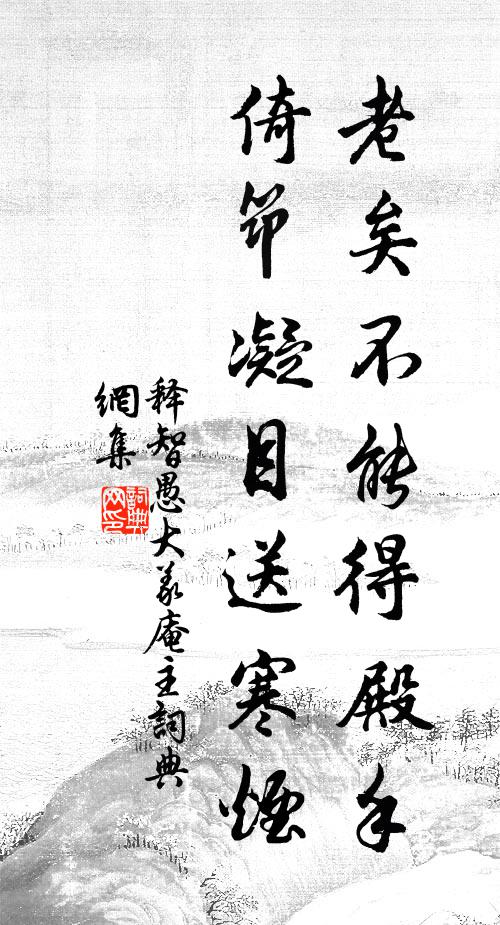 老矣不能得殿手
倚筇凝目送寒煙
释智愚大義庵主詞典
網集
詞典
网印